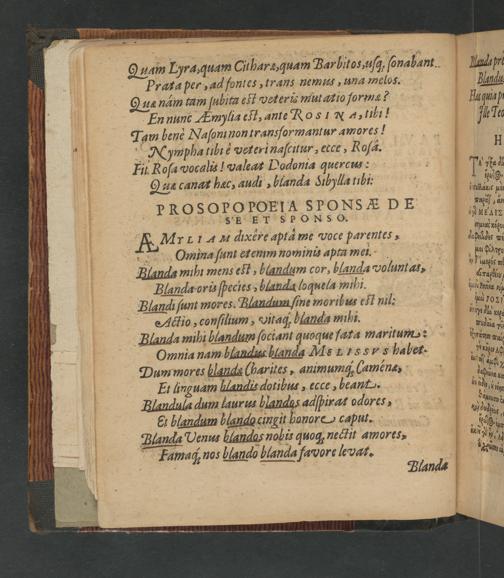 Quam Lyra, quam Cithara, quam Barbitos, usq́, sonabant.
Prata per, ad fontes, trans nemus, una melos.
Quænam tam subita est veteris mutatio formæ?
En nunc Æmylia est, ante ROSINA, tibi!
Tam benè Nasoni non transformantur amores!
Nympha tibi è veteri nascitur, ecce, Rosâ.
Fit Rosa vocalis! valeat Dodonia quercus:
Quæ canat hæc, audi, blanda Sibylla tibi:
PROSOPOPOEIA SPONSÆ DE
SE ET SPONSO.
ÆMYLIAM dixêre aptâ me voce parentes,
Omina sunt etenim nominis apta mei.
Blanda mihi mens est, blandum cor, blanda voluntas,
Blanda oris species, blanda loquela mihi.
Blandi sunt mores. Blandum sine moribus est nil:
Actio, consilium, vitaq́, blanda mihi.
Blanda mihi blandum sociant quoque fata maritum:
Omnia nam blandus blanda MELISSVS habet.
Dum mores blanda Charites, animumq́, Camœna,
Et linguam blandis dotibus, ecce, beant.
Blandula dum laurus blandos adspirat odores,
Et blandum blando cingit honore caput.
Blanda Venus blandos nobis quoq, nectit amores,
Famaq́, nos blando blanda favore levat.
Blanda